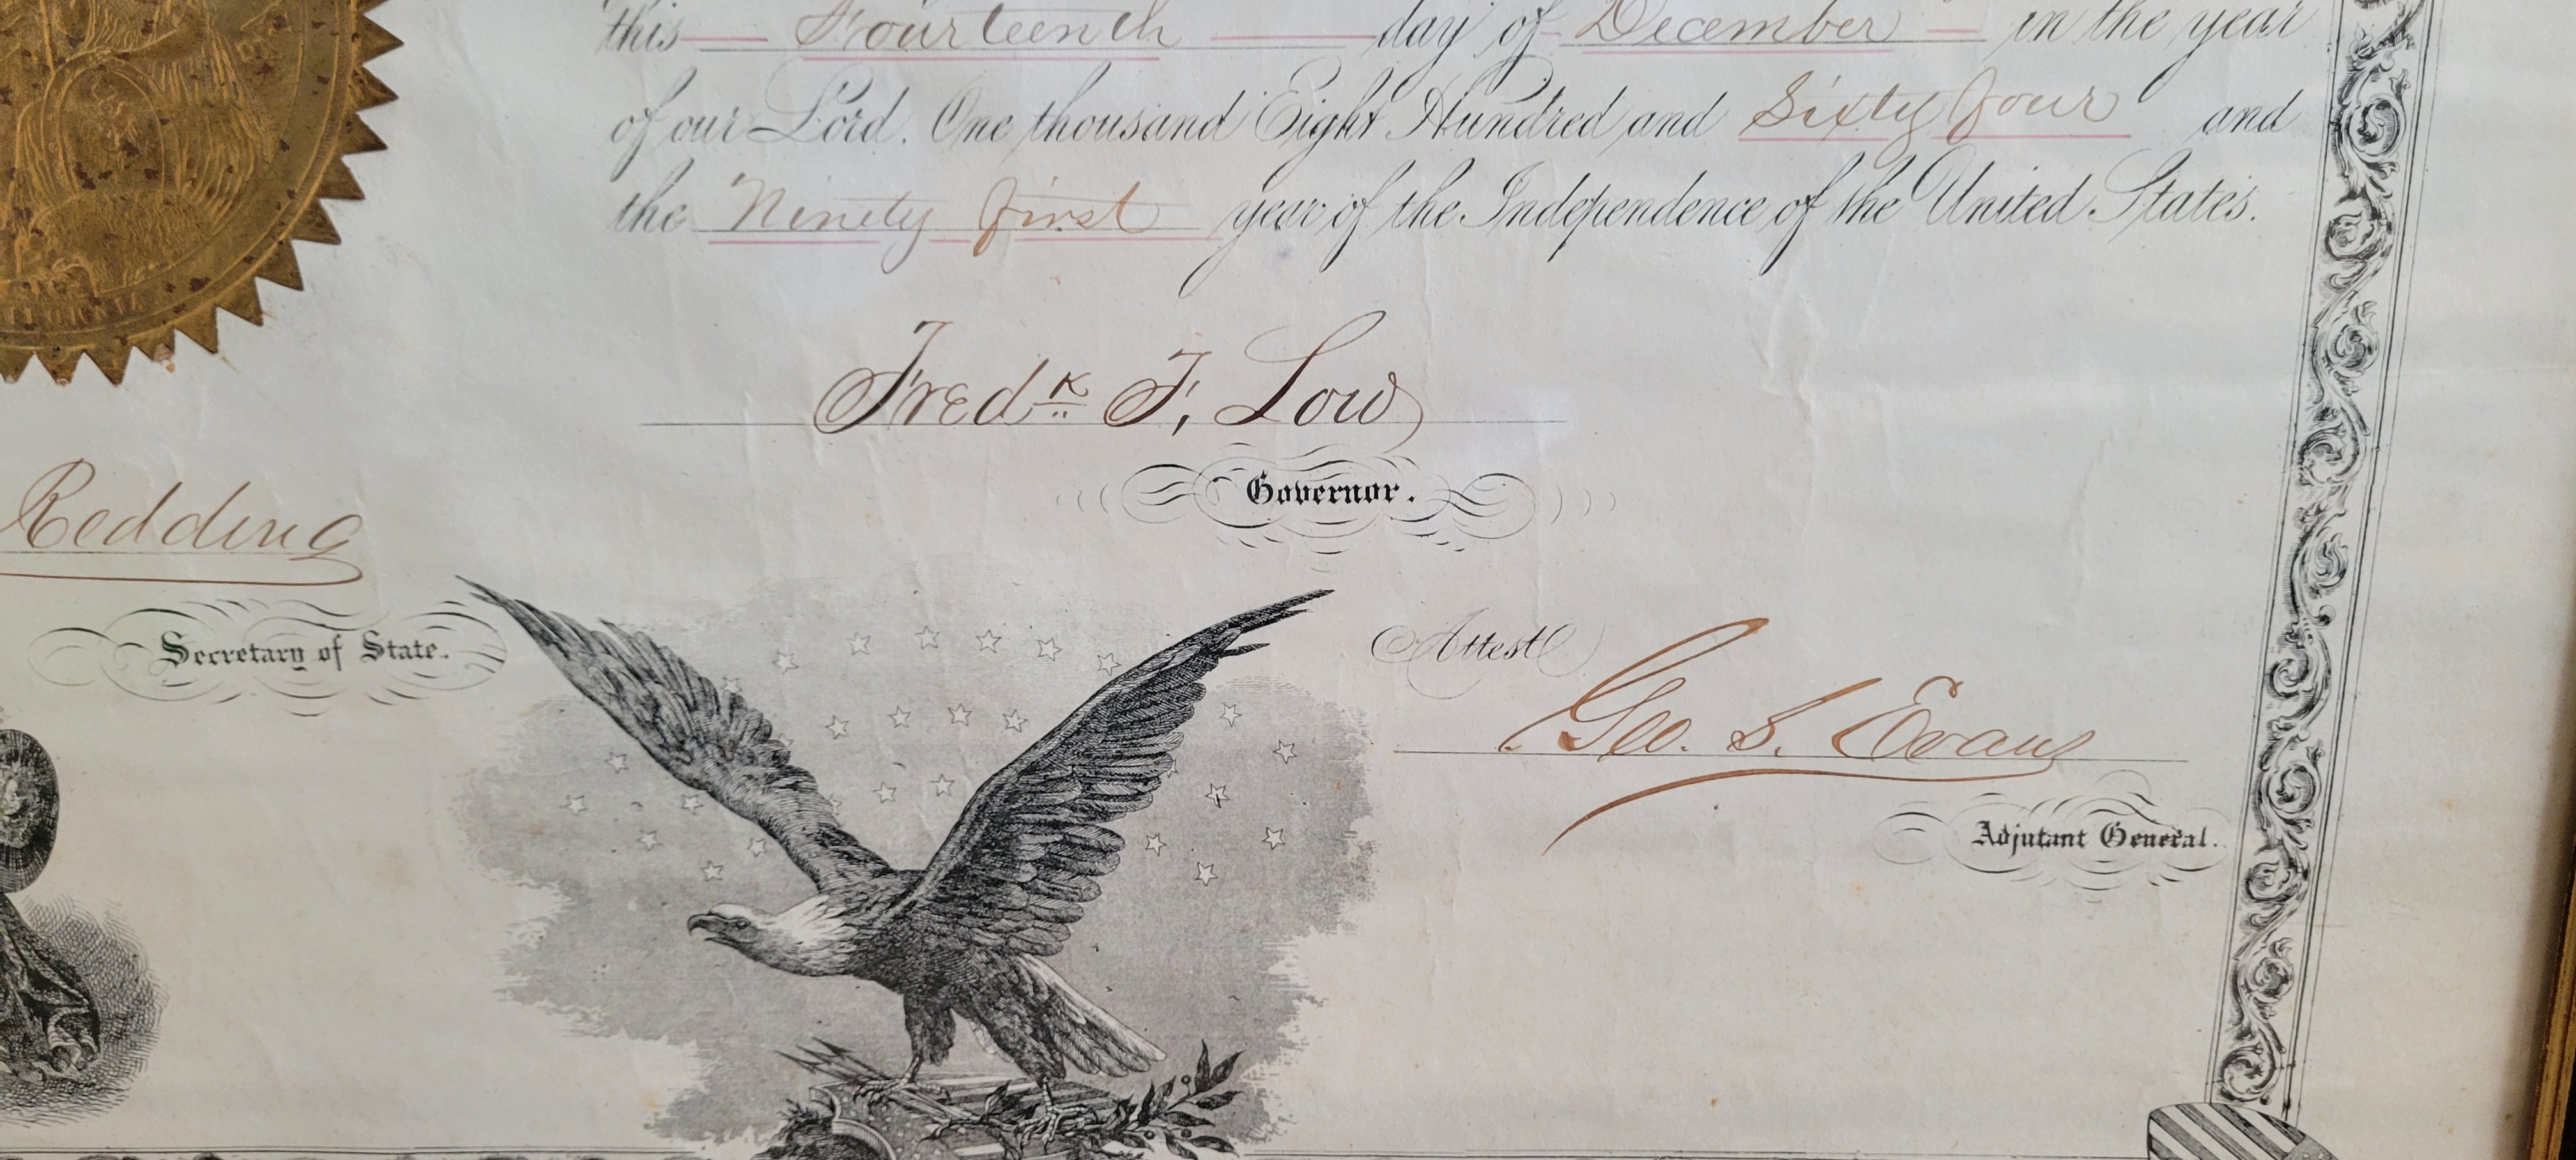 this Fourteenth day of December in the year
of our Lord. One thousand Eight Hundred and Sixty four and
the Ninety first year of the Independence of the United States.
Fredk F. Low
Governor.
Redding
Secretary of State.
Attest
Geo. S. Evans
Adjutant General.